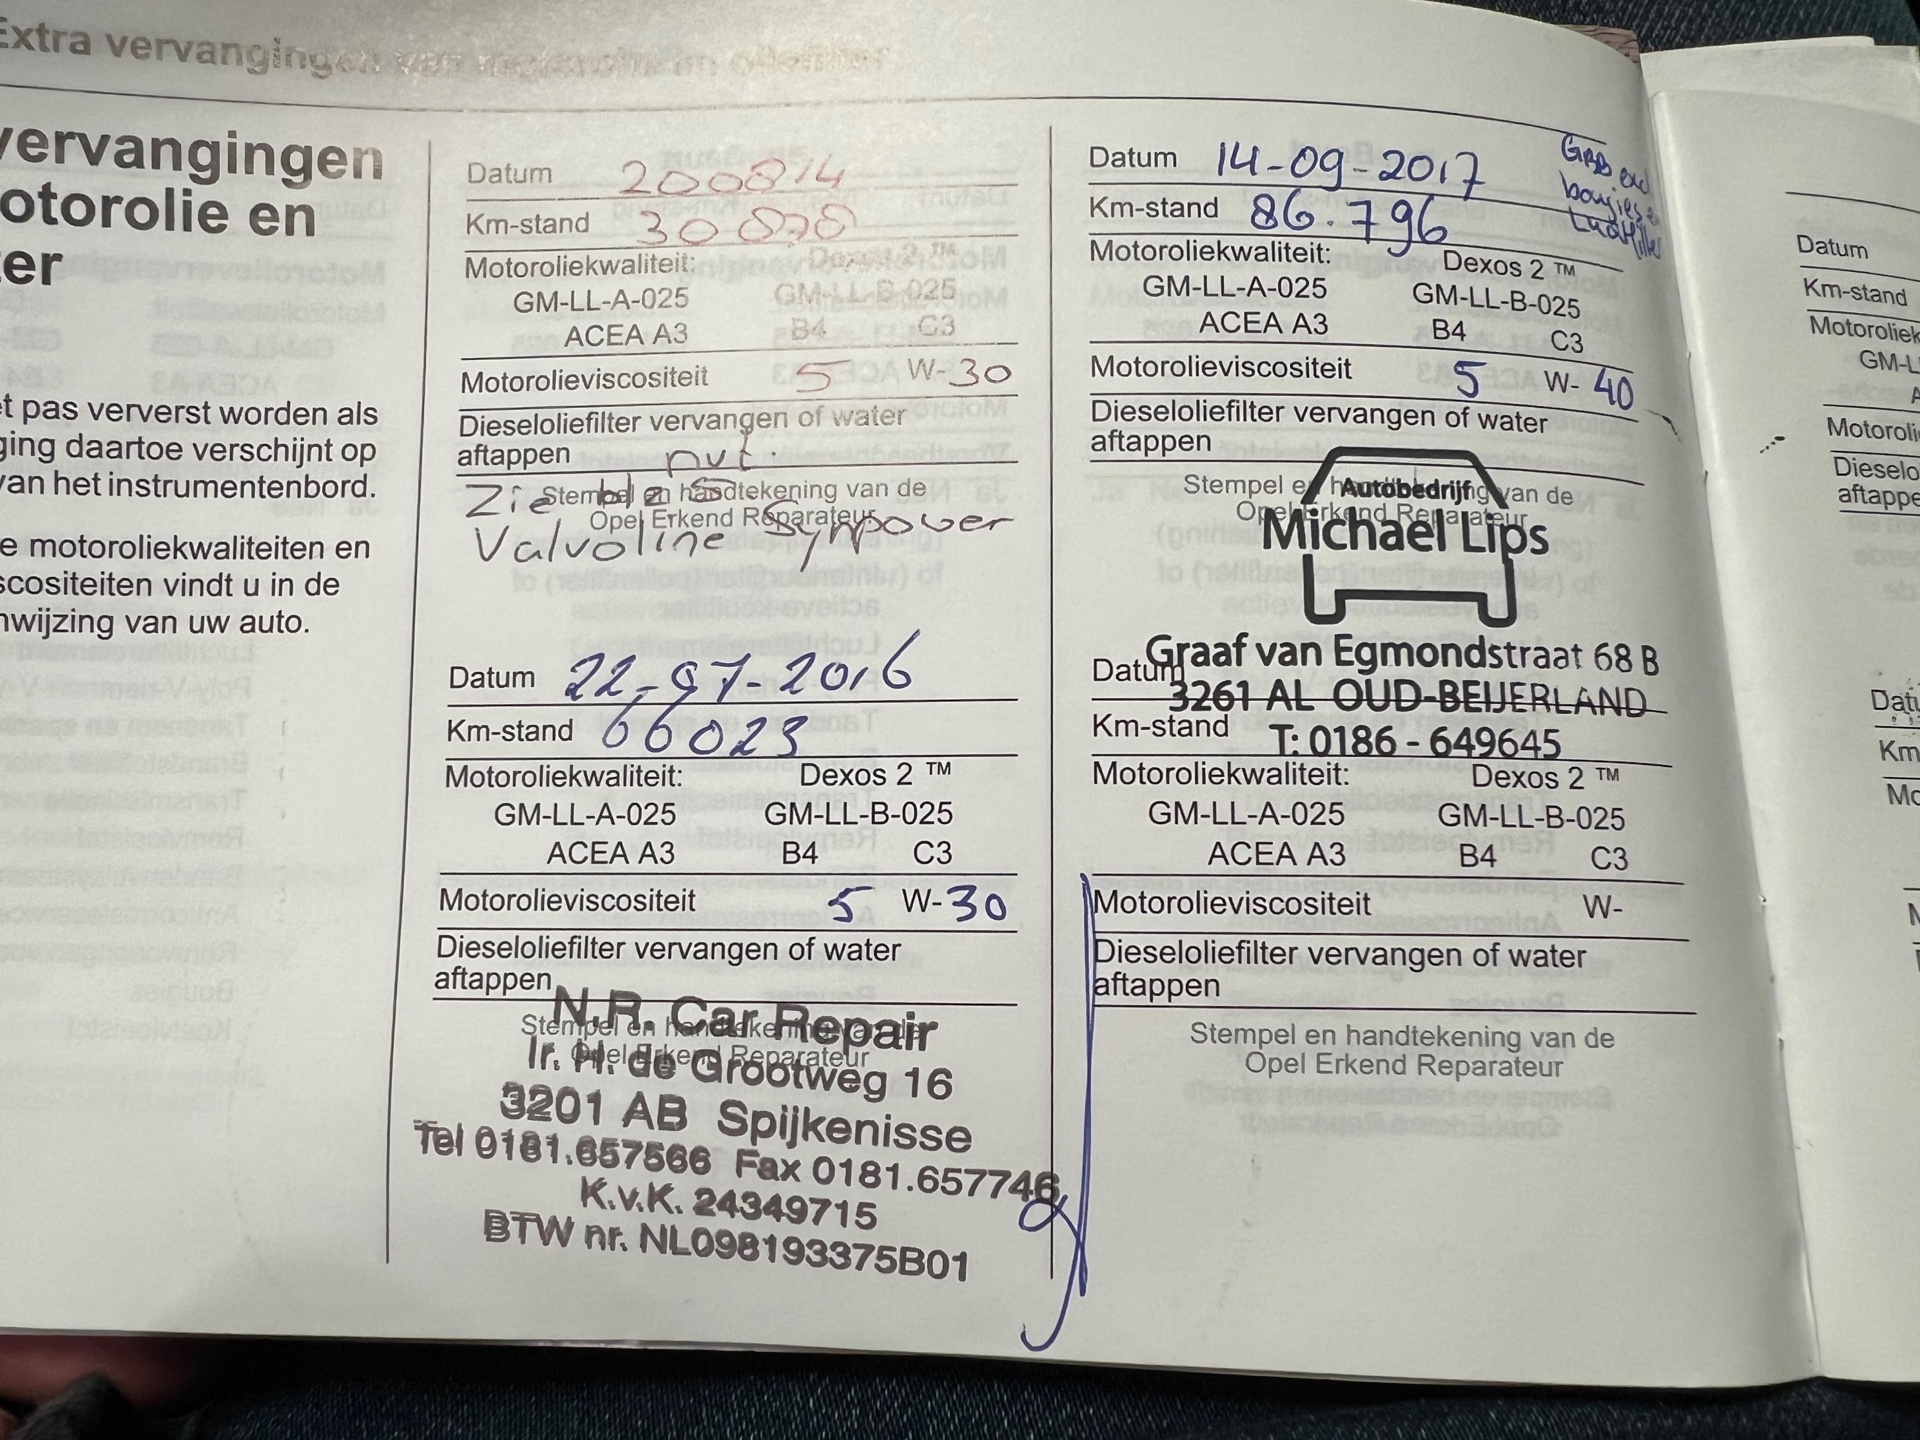 Extra vervangingen van motorolie en oliefilter
vervangingen
otorolie en
ter
t pas ververst worden als
ging daartoe verschijnt op
van het instrumentenbord.
e motoroliekwaliteiten en
scositeiten vindt u in de
nwijzing van uw auto.
Datum 200814
Km-stand
Motoroliekwaliteit: Dexos 2 ™
GM-LL-A-025 GM-LL-B-025
ACEA A3 B4 C3
Motorolieviscositeit 5 W-30
Dieseloliefilter vervangen of water
aftappen nvt.
Stempel en handtekening van de
Opel Erkend Reparateur
Zie
Valvoline Synpower
Datum 22-07-2016
Km-stand 66023
Motoroliekwaliteit: Dexos 2 ™
GM-LL-A-025 GM-LL-B-025
ACEA A3 B4 C3
Motorolieviscositeit 5 W-30
Dieseloliefilter vervangen of water
aftappen
Stempel en handtekening van de
Opel Erkend Reparateur
N.R. Car Repair
Ir. H. de Grootweg 16
3201 AB Spijkenisse
Tel 0181.657566 Fax 0181.657746
K.v.K. 24349715
BTW nr. NL098193375B01
Datum 14-09-2017
Km-stand 86.796
bougies en
Luchtfilter
Motoroliekwaliteit: Dexos 2 ™
GM-LL-A-025 GM-LL-B-025
ACEA A3 B4 C3
Motorolieviscositeit 5 W-40
Dieseloliefilter vervangen of water
aftappen
Stempel en handtekening van de
Opel Erkend Reparateur
Autobedrijf
Michael Lips
Graaf van Egmondstraat 68 B
3261 AL OUD-BEIJERLAND
T: 0186 - 649645
Datum
Km-stand
Motoroliekwaliteit: Dexos 2 ™
GM-LL-A-025 GM-LL-B-025
ACEA A3 B4 C3
Motorolieviscositeit W-
Dieseloliefilter vervangen of water
aftappen
Stempel en handtekening van de
Opel Erkend Reparateur
Datum
Km-stand
Motoroliek
GM-L
A
Motoroli
Dieselo
aftappe
Datu
Km
Mo